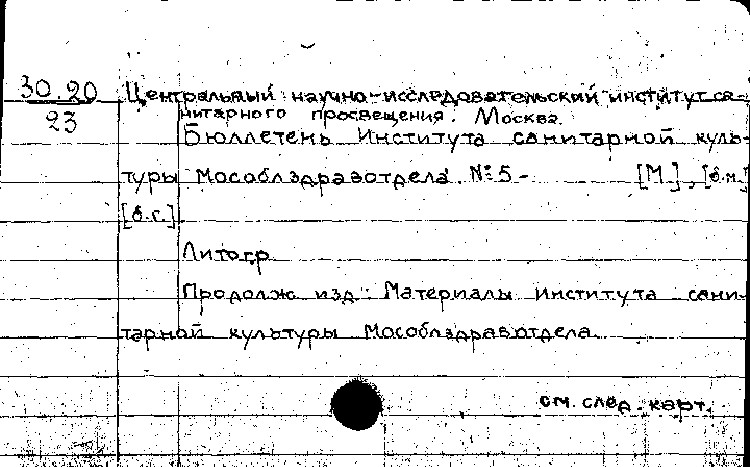 30.20
23
Центральный научно-исследовательский институт са-
нитарного просвещения. Москва.
Бюллетень Института санитарной куль-
туры Мособлздравотдела. № 5 - [М.], [б.и.]
[б.г.]
Литогр.
Продолж. изд.: Материалы Института сани-
тарной культуры Мособлздравотдела.
см. след. карт.